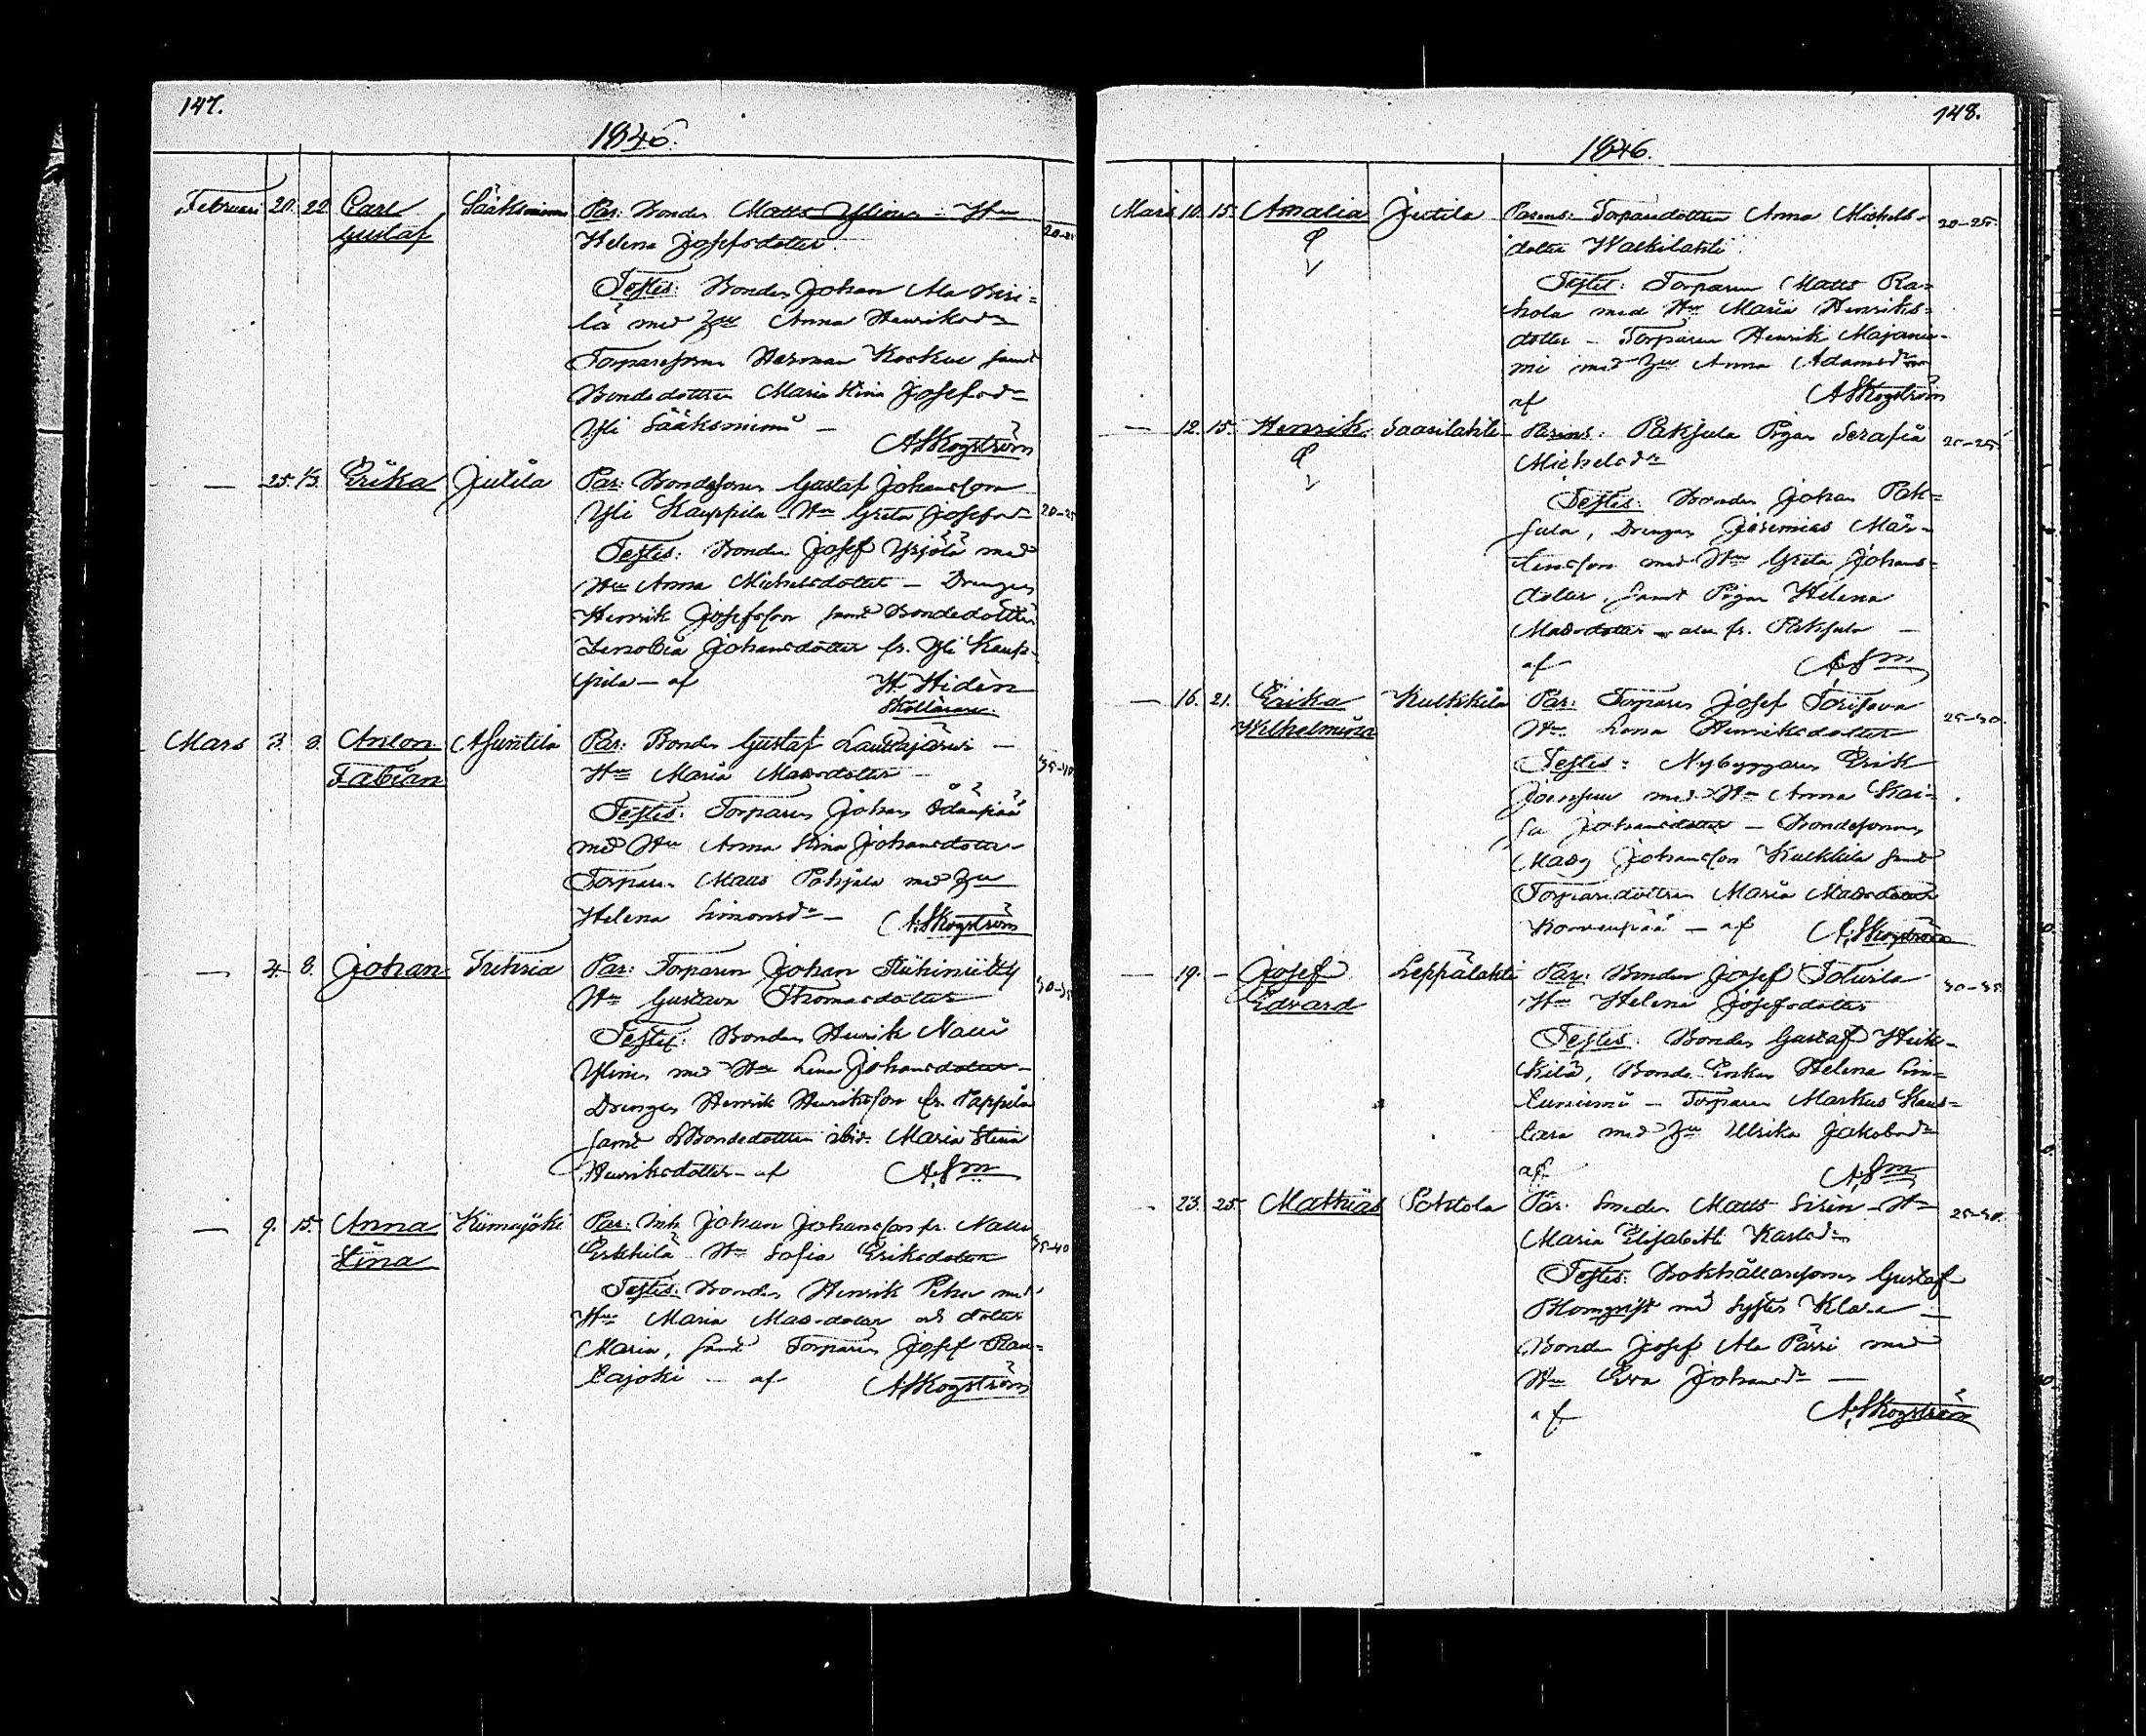 147.
1846.
Februari 20. 22. Carl Sääksniemi Par: Bonden Matts Yliner - Hu
Gustaf Helena Josefsdotter 20-25
Testes: Bonden Johan Ala Siri=
lä med Hu Anna Henriksdr
Torparesonen Herman Koskue samt
Bondedottren Maria Stina Josefsdr
Yli Sääksniemi -
A. Skogström
— 25. 1/3. Erika Jutila Par: Bondesonen Gustaf Johansson
Yli Kauppila Hu Greta Josefsdr 20-25
Testes: Bonden Josef Yrjölä med
Hu Anna Michelsdotter - Drengen
Henrik Josefsson samt Bondedottren
Zenobia Johansdotter fr. Yli Kaup-
pila - af H. Hidén
Skollärare
Mars 3. 8. Anton Asuntila Par: Bonden Gustaf Lauttajärvi -
Fabian Hu Maria Matsdotter - 35-40
Testes: Torparen Johan
med Hu Anna Stina Johansdotter-
Torparen Matts Pohjola med Hu
Helena Simonsdr - A. Skogström
— 4. 8. Johan Trehria Par: Torparen Johan Riihiniitty
Hu Gustava Thomasdotter 30-35
Testes: Bonden Henrik Nauu
Ylinen med Hu Lena Johansdotter-
Drengen Henrik Henriksson fr. Pappila
samt Bondedottren ibid. Maria Stina
Henriksdotter - af A. Sm
— 9. 15. Anna Kiimajoki Par: Inh. Johan Johansson fr. Nauu
Stina Erkkilä Hu Sofia Eriksdotter 35-40
Testes: Bonden Henrik Peku med
Hu Maria Matsdotter och dotter
Maria, samt Torparen Josef Rau-
tajoki - af A. Skogström
148.
1846.
Mars 10. 15. Amalia Jutila Parens: Torparedottren Anna Michels- 20-25.
dotter Walkilahti
Testes: Torparen Matts Ra=
hola med Hu Maria Henriks=
dotter - Torparen Henrik Majanie-
mi med Hu Anna Adamsdr
af A Skogström
— 12. 15. Henrik Saarilahti Parens: Pakjula Pigan Serafia 20-25
Michelsdr
Testes: Bonden Johan Pak=
jula, Drengen Jeremias Mår-
tensson med Hu Greta Johans-
dotter, samt Pigan Helena
Matsdotter - alla fr. Pakjula -
af A. Sm
— 16. 21. Erika Kulkkila Par: Torparen Josef Toriseva 25-30
Wilhelmina Hu Lena Henriksdotter
Testes: Nybyggaren Erik
Joensuu med Hu Anna Kai-
sa Johansdotter - Bondesonen
Mats Johansson Kulkkila samt
Torparedottren Maria Matsdotter
Korvenpää - af A. Skogström
— 19. - Josef Leppälahti Par: Bonden Josef Toturla 30-35
Edvard Hu Helena Josefsdotter
Testes: Bonden Gustaf Heik-
kilä, Bonde Enkan Helena Lin-
tuniemi - Torparen Markus Kaus=
tara med Hu Ulrika Jakobsdr
af A. Sm
— 23. 25. Mathias Pohtola Par: Smeden Matts Sirin - Hu 25-30
Maria Elisabeth Karlsdr
Testes: Bokhållaresonen Gustaf
Blomqvist med syster Klara -
Bonden Josef Ala Pärri med
Hu Eva Johansdr -
af A. Skogström